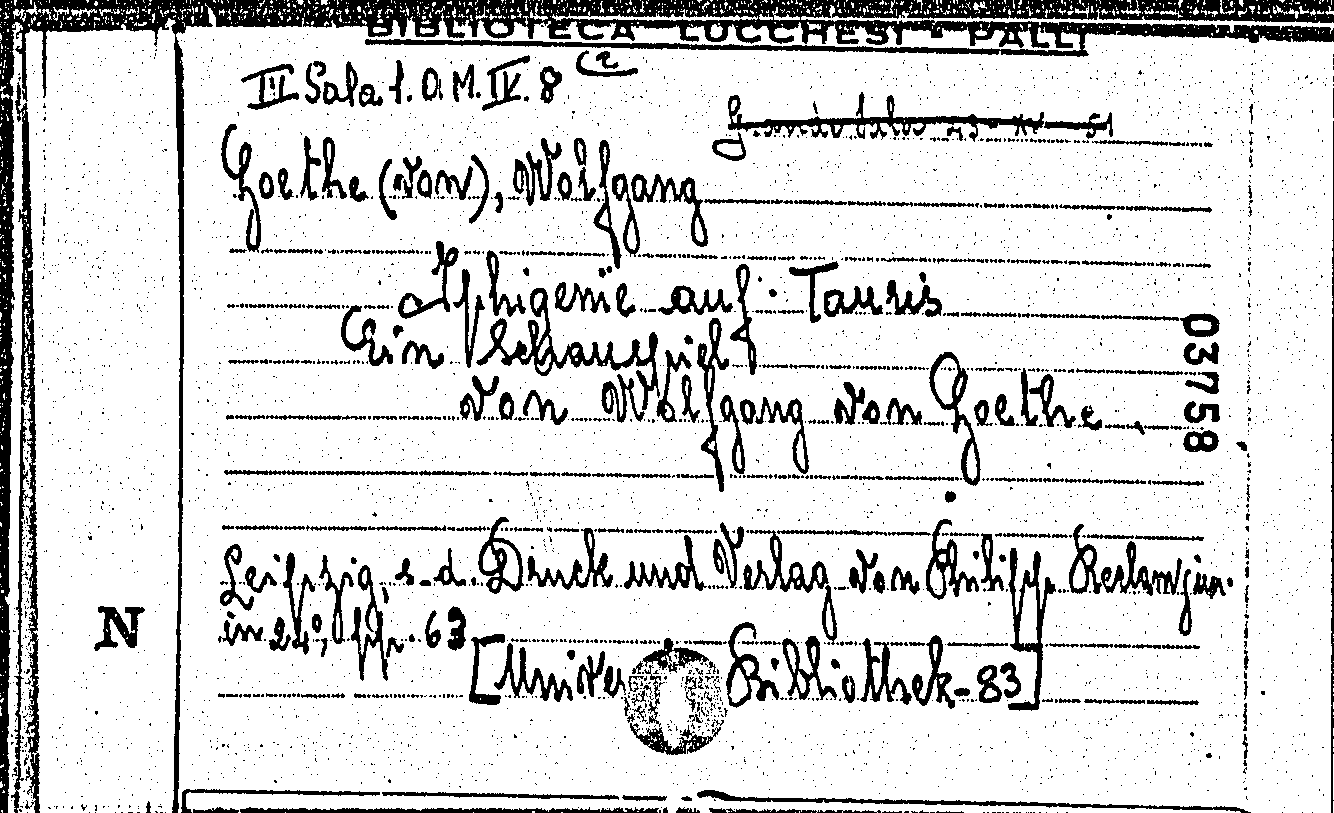 BIBLIOTECA LUCCHESI - PALLI
III Sala 1. O. M. IV. 8 (2
Goethe (von), Wolfgang
Iphigenie auf Tauris
Ein Schauspiel
von Wolfgang von Goethe.
03758
Leipzig, s.d. Druck und Verlag von Philipp Reclam jun.
in 24°, pp. 63
[Univer Bibliothek - 83]
N